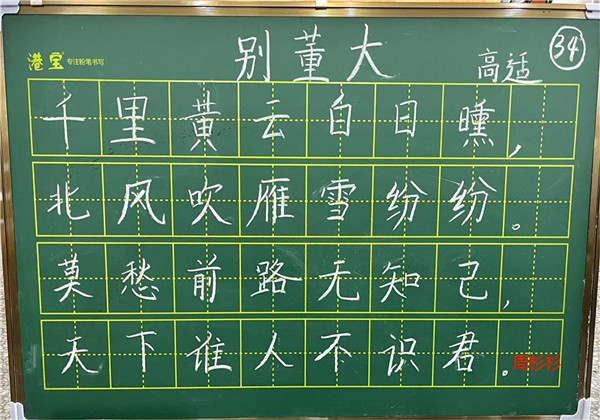 港宝 专注粉笔书写
别董大
高适
34
千里黄云自日曛，
北风吹雁雪纷纷。
莫愁前路无知己，
天下谁人不识君。
周杉杉